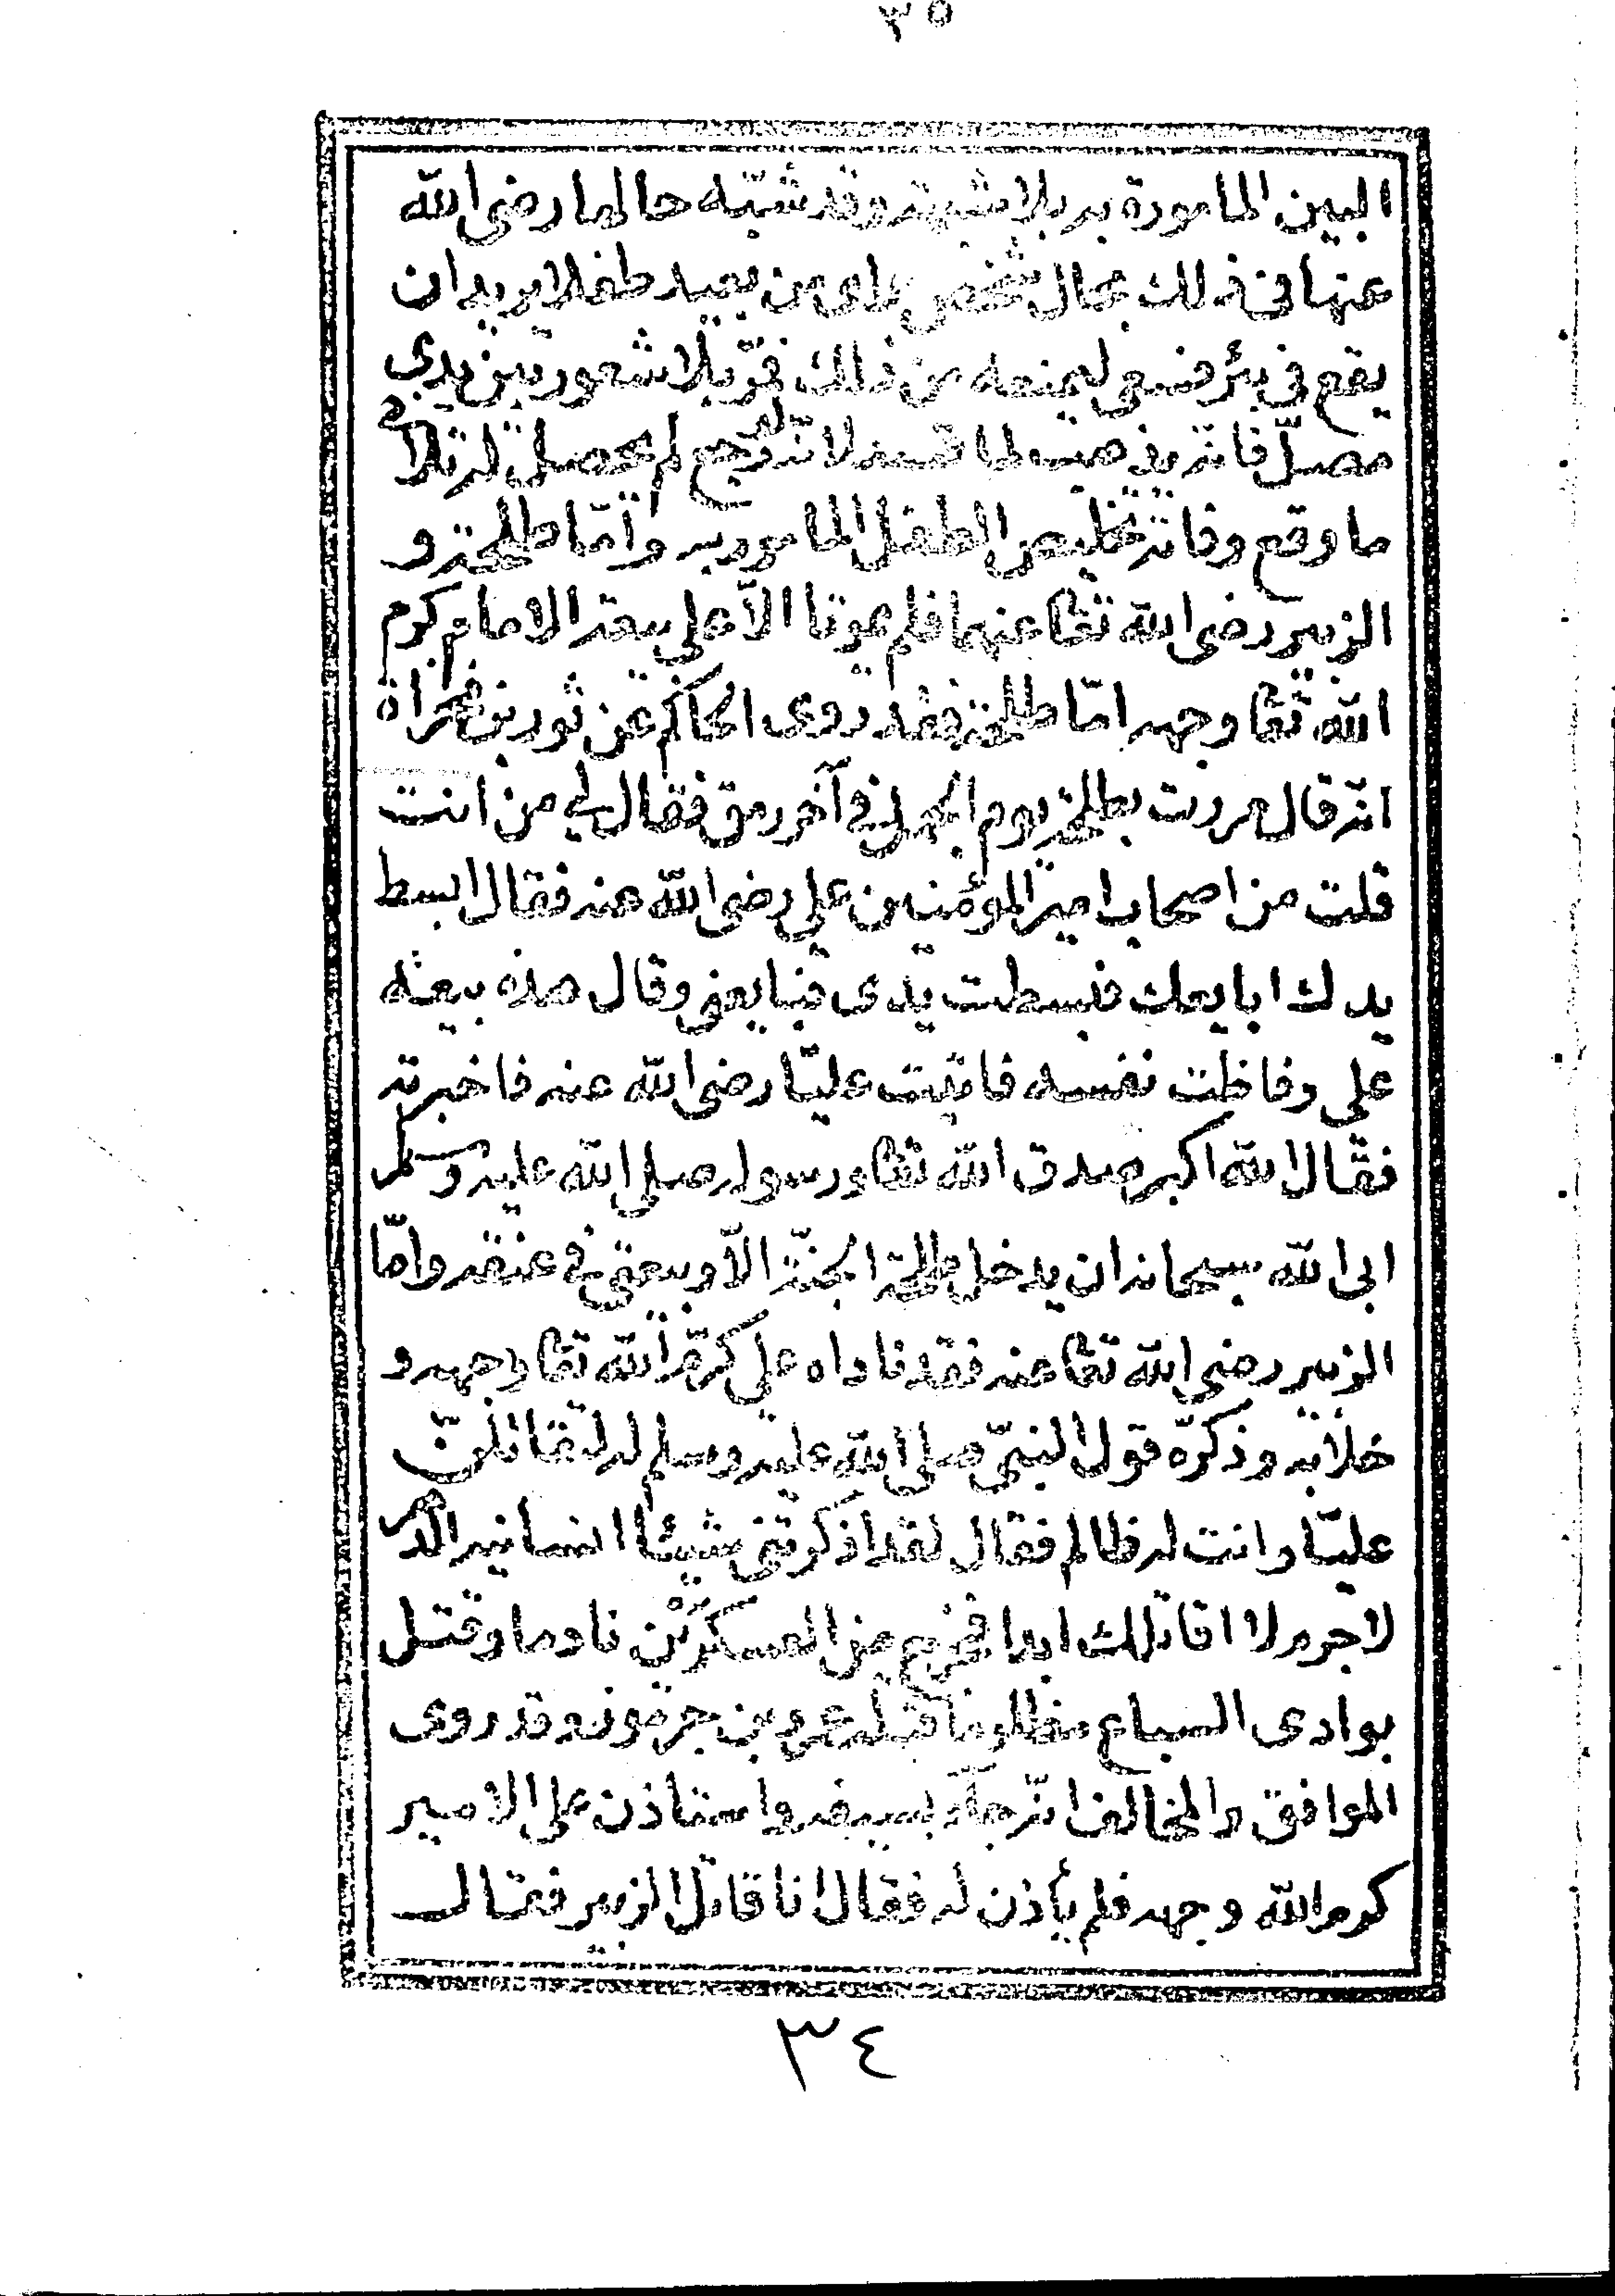 ٣٥
البين المامورة به بلا شبهة وقد شبّه حالها رضى الله
عنها فى ذلك بحال شخص رأى من بعيد طفلا يريد ان
يقع فى بئر فسعى ليمنعه من ذلك فمرّ بلا شعور بين يدى
مصلّ فانه يذهب لما قصد لانه لو رجع لم يحصل له تلافى
ما وقع وفاته تخليص الطفل المامور به وامّا طلحة و
الزبير رضى الله تعا عنهما فلم يموتا الاّ على بيعة الامام كرم
الله تعا وجهه امّا طلحة فقد روى الحاكم عن ثور بن مجزاة
انه قال مررت بطلحة يوم الجمل فى آخر رمق فقال لى من انت
قلت من اصحاب امير المؤمنين على رضى الله عنه فقال ابسط
يدك ابايعك فبسطت يدى فبايعنى وقال هذه بيعة
على وفاظت نفسه فاتيت عليّا رضى الله عنه فاخبرته
فقال الله اكبر صدق الله تعا ورسوله صلى الله عليه وسلم
ابى الله سبحانه ان يدخل طلحة الجنّة الاّ وبيعتى فى عنقه وامّا
الزبير رضى الله تعا عنه فقد ناداه على كرّم الله تعا وجهه و
خلا به وذكرّه قول النبىّ صلى الله عليه وسلم له لتقاتلنّ
عليّا وانت له ظالم فقال لقد اذكرتنى شيئا انسانيه الدهر
لا جرم لا اقاتلك ابدا فخرج من العسكرين نادما وقتل
بوادى السباع مظلوما قتله عمرو بن جرموز وقد روى
الموافق والمخالف انّه جآء بسيفه واستاذن على الامير
كرم الله وجهه فلم يأذن له فقال انا قاتل الزبير فقال
٣٤